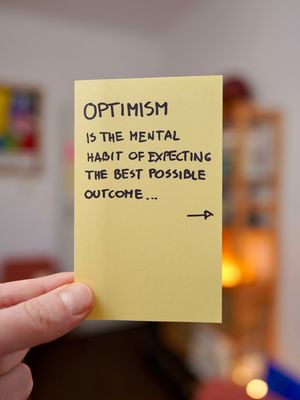 OPTIMISM
IS THE MENTAL
HABIT OF EXPECTING
THE BEST POSSIBLE
OUTCOME...
→